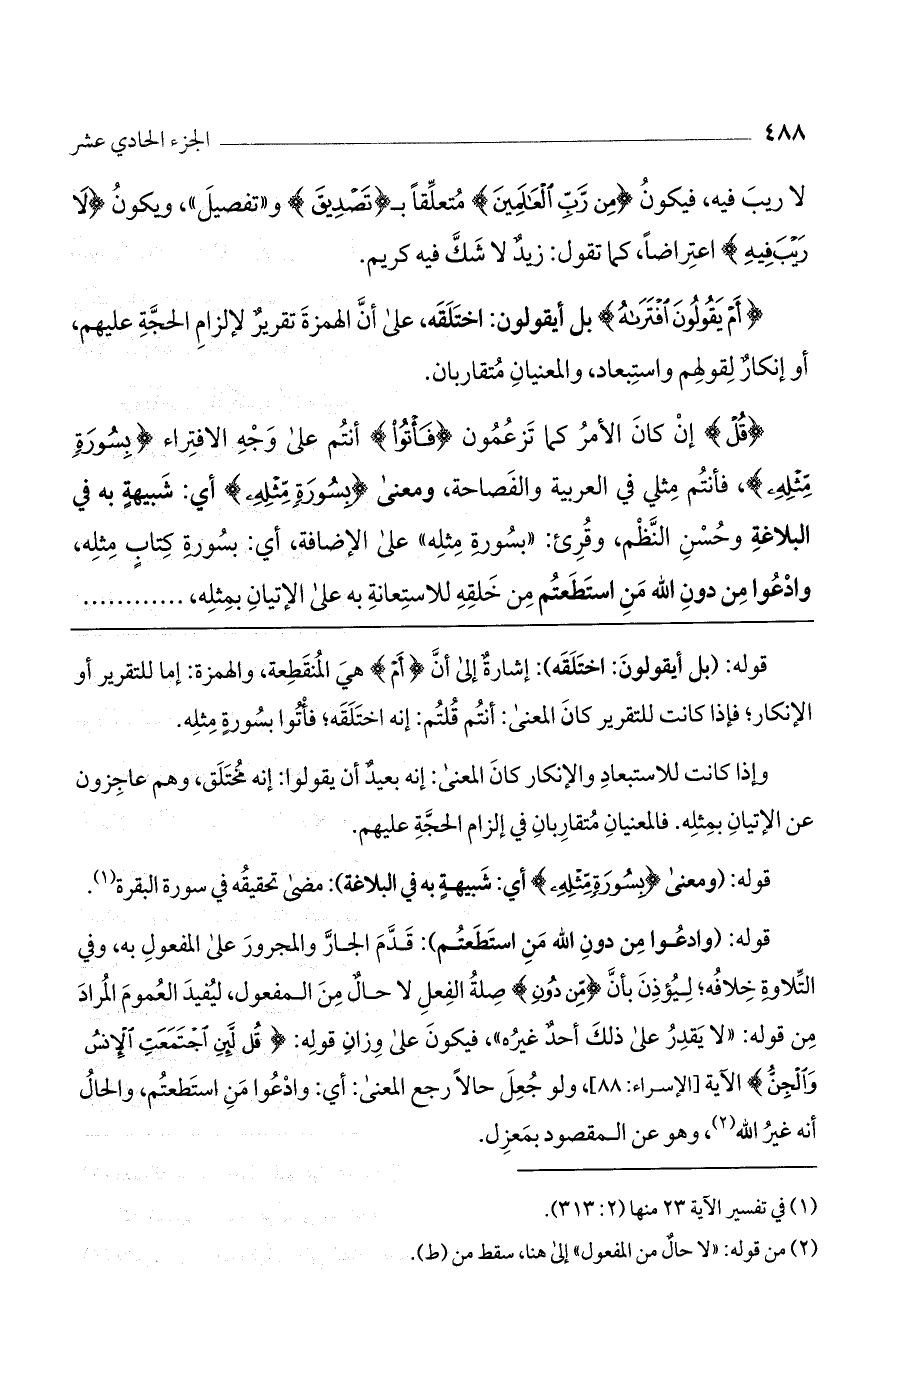 ٤٨٨ الجزء الحادي عشر
لا ريبَ فيه، فيكونُ ﴿مِن رَّبِّ ٱلْعَٰلَمِينَ﴾ مُتعلِّقاً بـ﴿تَصْدِيقَ﴾ و«تفصيلَ»، ويكونُ ﴿لَا
رَيْبَ فِيهِ﴾ اعتِراضاً، كما تقول: زيدٌ لا شَكَّ فيه كريم.
﴿أَمْ يَقُولُونَ ٱفْتَرَىٰهُ﴾ بل أيقولون: اختَلَقَه، علىٰ أنَّ الهمزةَ تقريرٌ لإلزامِ الحجَّةِ عليهم،
أو إنكارٌ لِقولِهم واستِبعاد، والمعنيانِ مُتقاربان.
﴿قُلْ﴾ إنْ كانَ الأمرُ كما تَزعُمُون ﴿فَأْتُوا۟﴾ أنتُم علىٰ وَجْهِ الافتِراء ﴿بِسُورَةٍ
مِّثْلِهِۦ﴾، فأنتُم مِثلي في العربية والفَصاحة، ومعنىٰ ﴿بِسُورَةٍ مِّثْلِهِۦ﴾ أي: شَبيهةٍ به في
البلاغةِ وحُسْنِ النَّظْم، وقُرِئ: «بسُورةِ مِثلِه» علىٰ الإضافة، أي: بسُورةِ كِتابٍ مِثلِه،
وادْعُوا مِن دونِ الله مَنِ استَطَعتُم مِن خَلقِهِ للاستِعانةِ به علىٰ الإتيانِ بمِثلِه، ............
قوله: (بل أيقولونَ: اختَلَقَه): إشارةٌ إلىٰ أنَّ ﴿أَمْ﴾ هيَ المُنقَطِعة، والهمزة: إما للتقرير أو
الإنكار؛ فإذا كانت للتقرير كانَ المعنىٰ: أنتُم قُلتُم: إنه اختَلَقَه؛ فأْتُوا بسُورةٍ مِثلِه.
وإذا كانت للاستبعادِ والإنكار كانَ المعنىٰ: إنه بعيدٌ أن يقولوا: إنه مُختَلَق، وهم عاجِزون
عن الإتيانِ بمِثلِه. فالمعنيانِ مُتقارِبانِ في إلزام الحجَّةِ عليهم.
قوله: (ومعنىٰ ﴿بِسُورَةٍ مِّثْلِهِۦ﴾ أي: شَبيهةٍ به في البلاغة): مضىٰ تحقيقُه في سورة البقرة(١).
قوله: (وادعُوا مِن دونِ الله مَنِ استَطَعتُم): قَدَّمَ الجارَّ والمجرورَ علىٰ المفعولِ به، وفي
التِّلاوةِ خِلافُه؛ لِيُؤذِنَ بأنَّ ﴿مِّن دُونِ﴾ صِلةُ الفِعلِ لا حالٌ مِنَ المفعول، ليُفيدَ العُمومَ المُرادَ
مِن قوله: «لا يَقدِرُ علىٰ ذلكَ أحدٌ غيرُه»، فيكونَ علىٰ وِزانِ قولِه: ﴿قُل لَّئِنِ ٱجْتَمَعَتِ ٱلْإِنسُ
وَٱلْجِنُّ﴾ الآية [الإسراء: ٨٨]، ولو جُعِلَ حالاً رجع المعنىٰ: أي: وادْعُوا مَنِ استَطعتُم، والحالُ
أنه غيرُ الله(٢)، وهو عن المقصود بمَعزِل.
(١) في تفسير الآية ٢٣ منها (٢: ٣١٣).
(٢) من قوله: «لا حالٌ من المفعول» إلىٰ هنا، سقط من (ط).